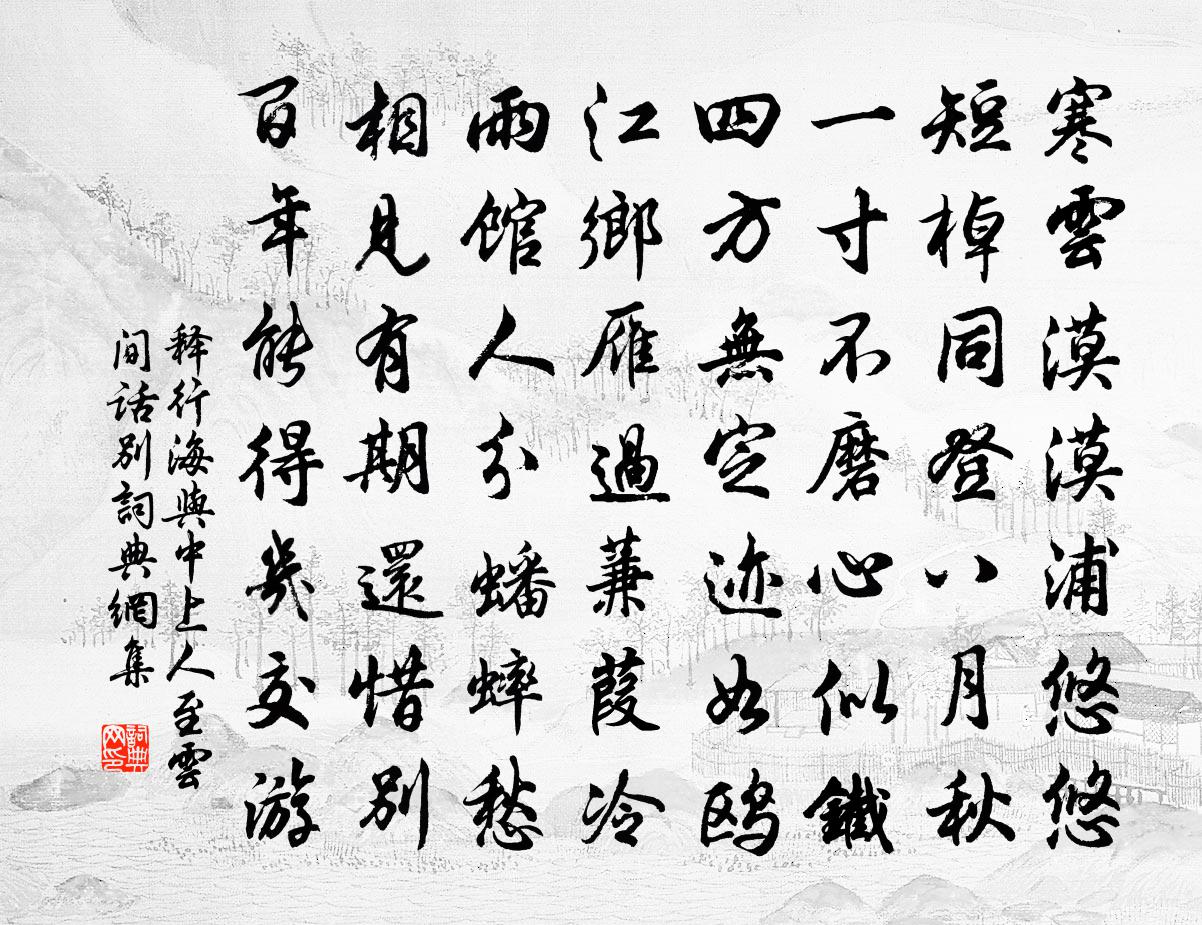 寒雲漠漠浦悠悠
短棹同登八月秋
一寸不磨心似鐵
四方無定迹如鸥
江鄉雁過蒹葭冷
雨馆人分蟋蟀愁
相見有期還惜別
百年能得幾交游
释行海與中上人至雲
间话別詞典網集
詞典
网印